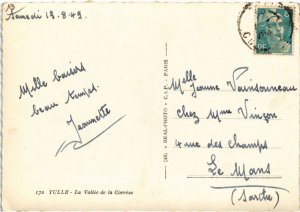 Samedi 13.8.49
Mille baisers
beau temps.
Jeannette
Melle
Jeanne Vaissonneau
chez Mme Vinçon
4 rue des champs
Le Mans
(Sarthe)
(26) ★ REAL-PHOTO - C.A.P. - PARIS
172 TULLE - La Vallée de la Corrèze